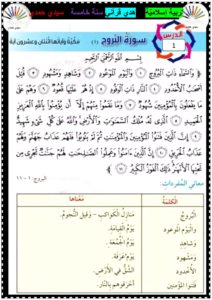 تربية إسلامية هدي قرآني سنة خامسة سيدي حمدي
الدرس 1 سورة البروج (1) مكية وآياتها اثنتان وعشرون آية
بسم الله الرحمن الرحيم
والسماء ذات البروج (1) واليوم الموعود (2) وشاهد ومشهود (3) قتل
أصحاب الأخدود (4) النار ذات الوقود (5) إذ هم عليها قعود (6) وهم على ما
يفعلون بالمؤمنين شهود (7) وما نقموا منهم إلا أن يؤمنوا بالله العزيز
الحميد (8) الذي له ملك السماوات والأرض والله على كل شيء شهيد (9)
إن الذين فتنوا المؤمنين والمؤمنات ثم لم يتوبوا فلهم عذاب جهنم ولهم
عذاب الحريق (10) إن الذين آمنوا وعملوا الصالحات لهم جنات تجري من
تحتها الأنهار ذلك الفوز الكبير (11)
البروج: 1 - 11
معاني المفردات:
الكلمة معناها
البروج منازل الكواكب - وقيل النجوم.
واليوم الموعود يوم القيامة.
وشاهد يوم الجمعة.
ومشهود يوم عرفة.
الأخدود الشق في الأرض.
فتنوا المؤمنين أحرقوهم بالنار.